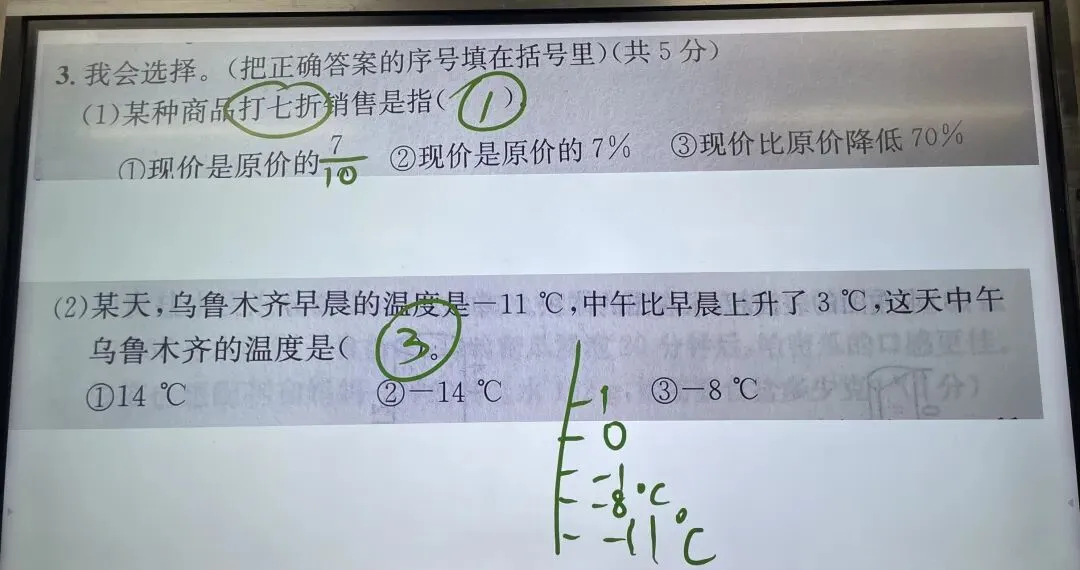 3. 我会选择。(把正确答案的序号填在括号里)(共5分)
(1)某种商品打七折销售是指( 1 )。
①现价是原价的7/10 ②现价是原价的7% ③现价比原价降低70%
(2)某天,乌鲁木齐早晨的温度是-11 ℃,中午比早晨上升了3 ℃,这天中午
乌鲁木齐的温度是( 3 。
①14 ℃ ②-14 ℃ ③-8 ℃
1
0
-1
-8℃
-11℃